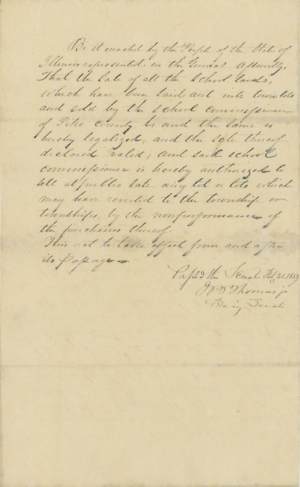 Be it enacted by the People of the State of
Illinois represented in the General Assembly
That the Sale of all the School Lands,
which have been laid out into town lots
and sold by the School commissioner
of Pike County be and the same is
hereby legalized, and the sale thereof
declared valid, and said School
commissioner is hereby authorized to
sell at public sale any lot or lots which
may have reverted to the township or
townships, by the nonperformance of
the purchasers thereof
This act to take effect from and after
its passage
Passed the Senate Feby
Thomas
Senate